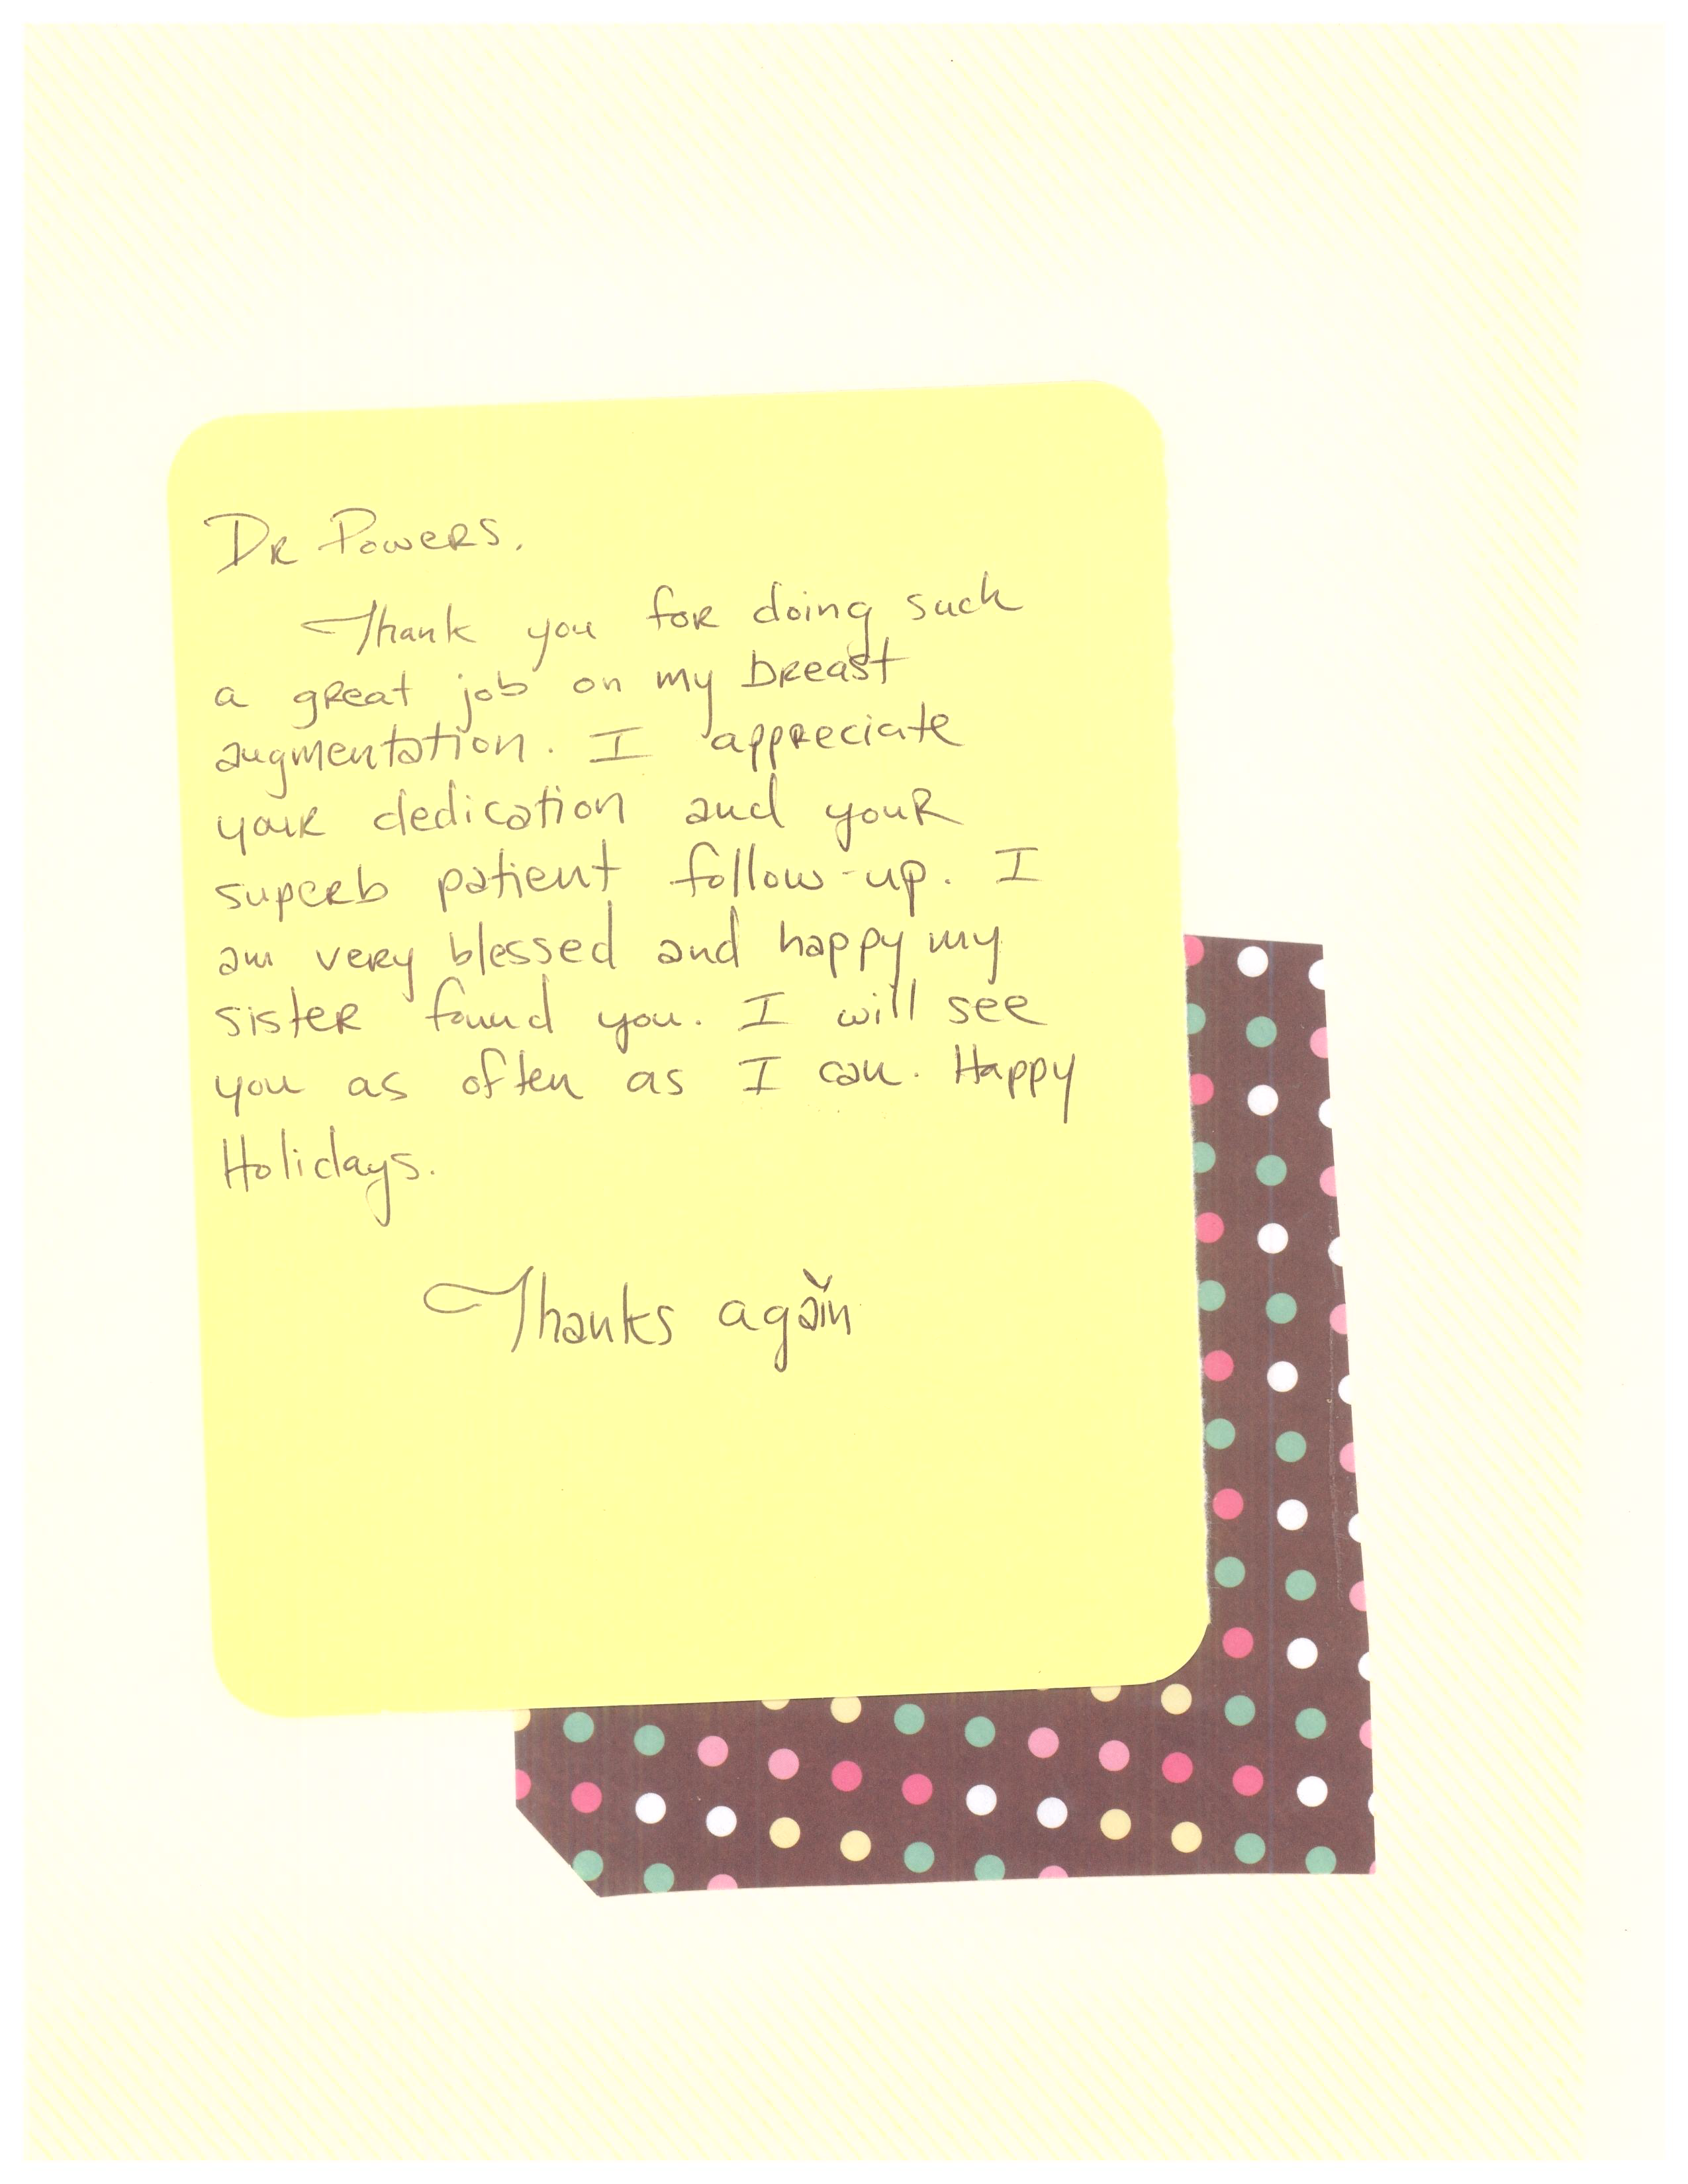 Dr Powers,
Thank you for doing such
a great job on my breast
augmentation. I appreciate
your dedication and your
superb patient follow-up. I
am very blessed and happy my
sister found you. I will see
you as often as I can. Happy
Holidays.
Thanks again